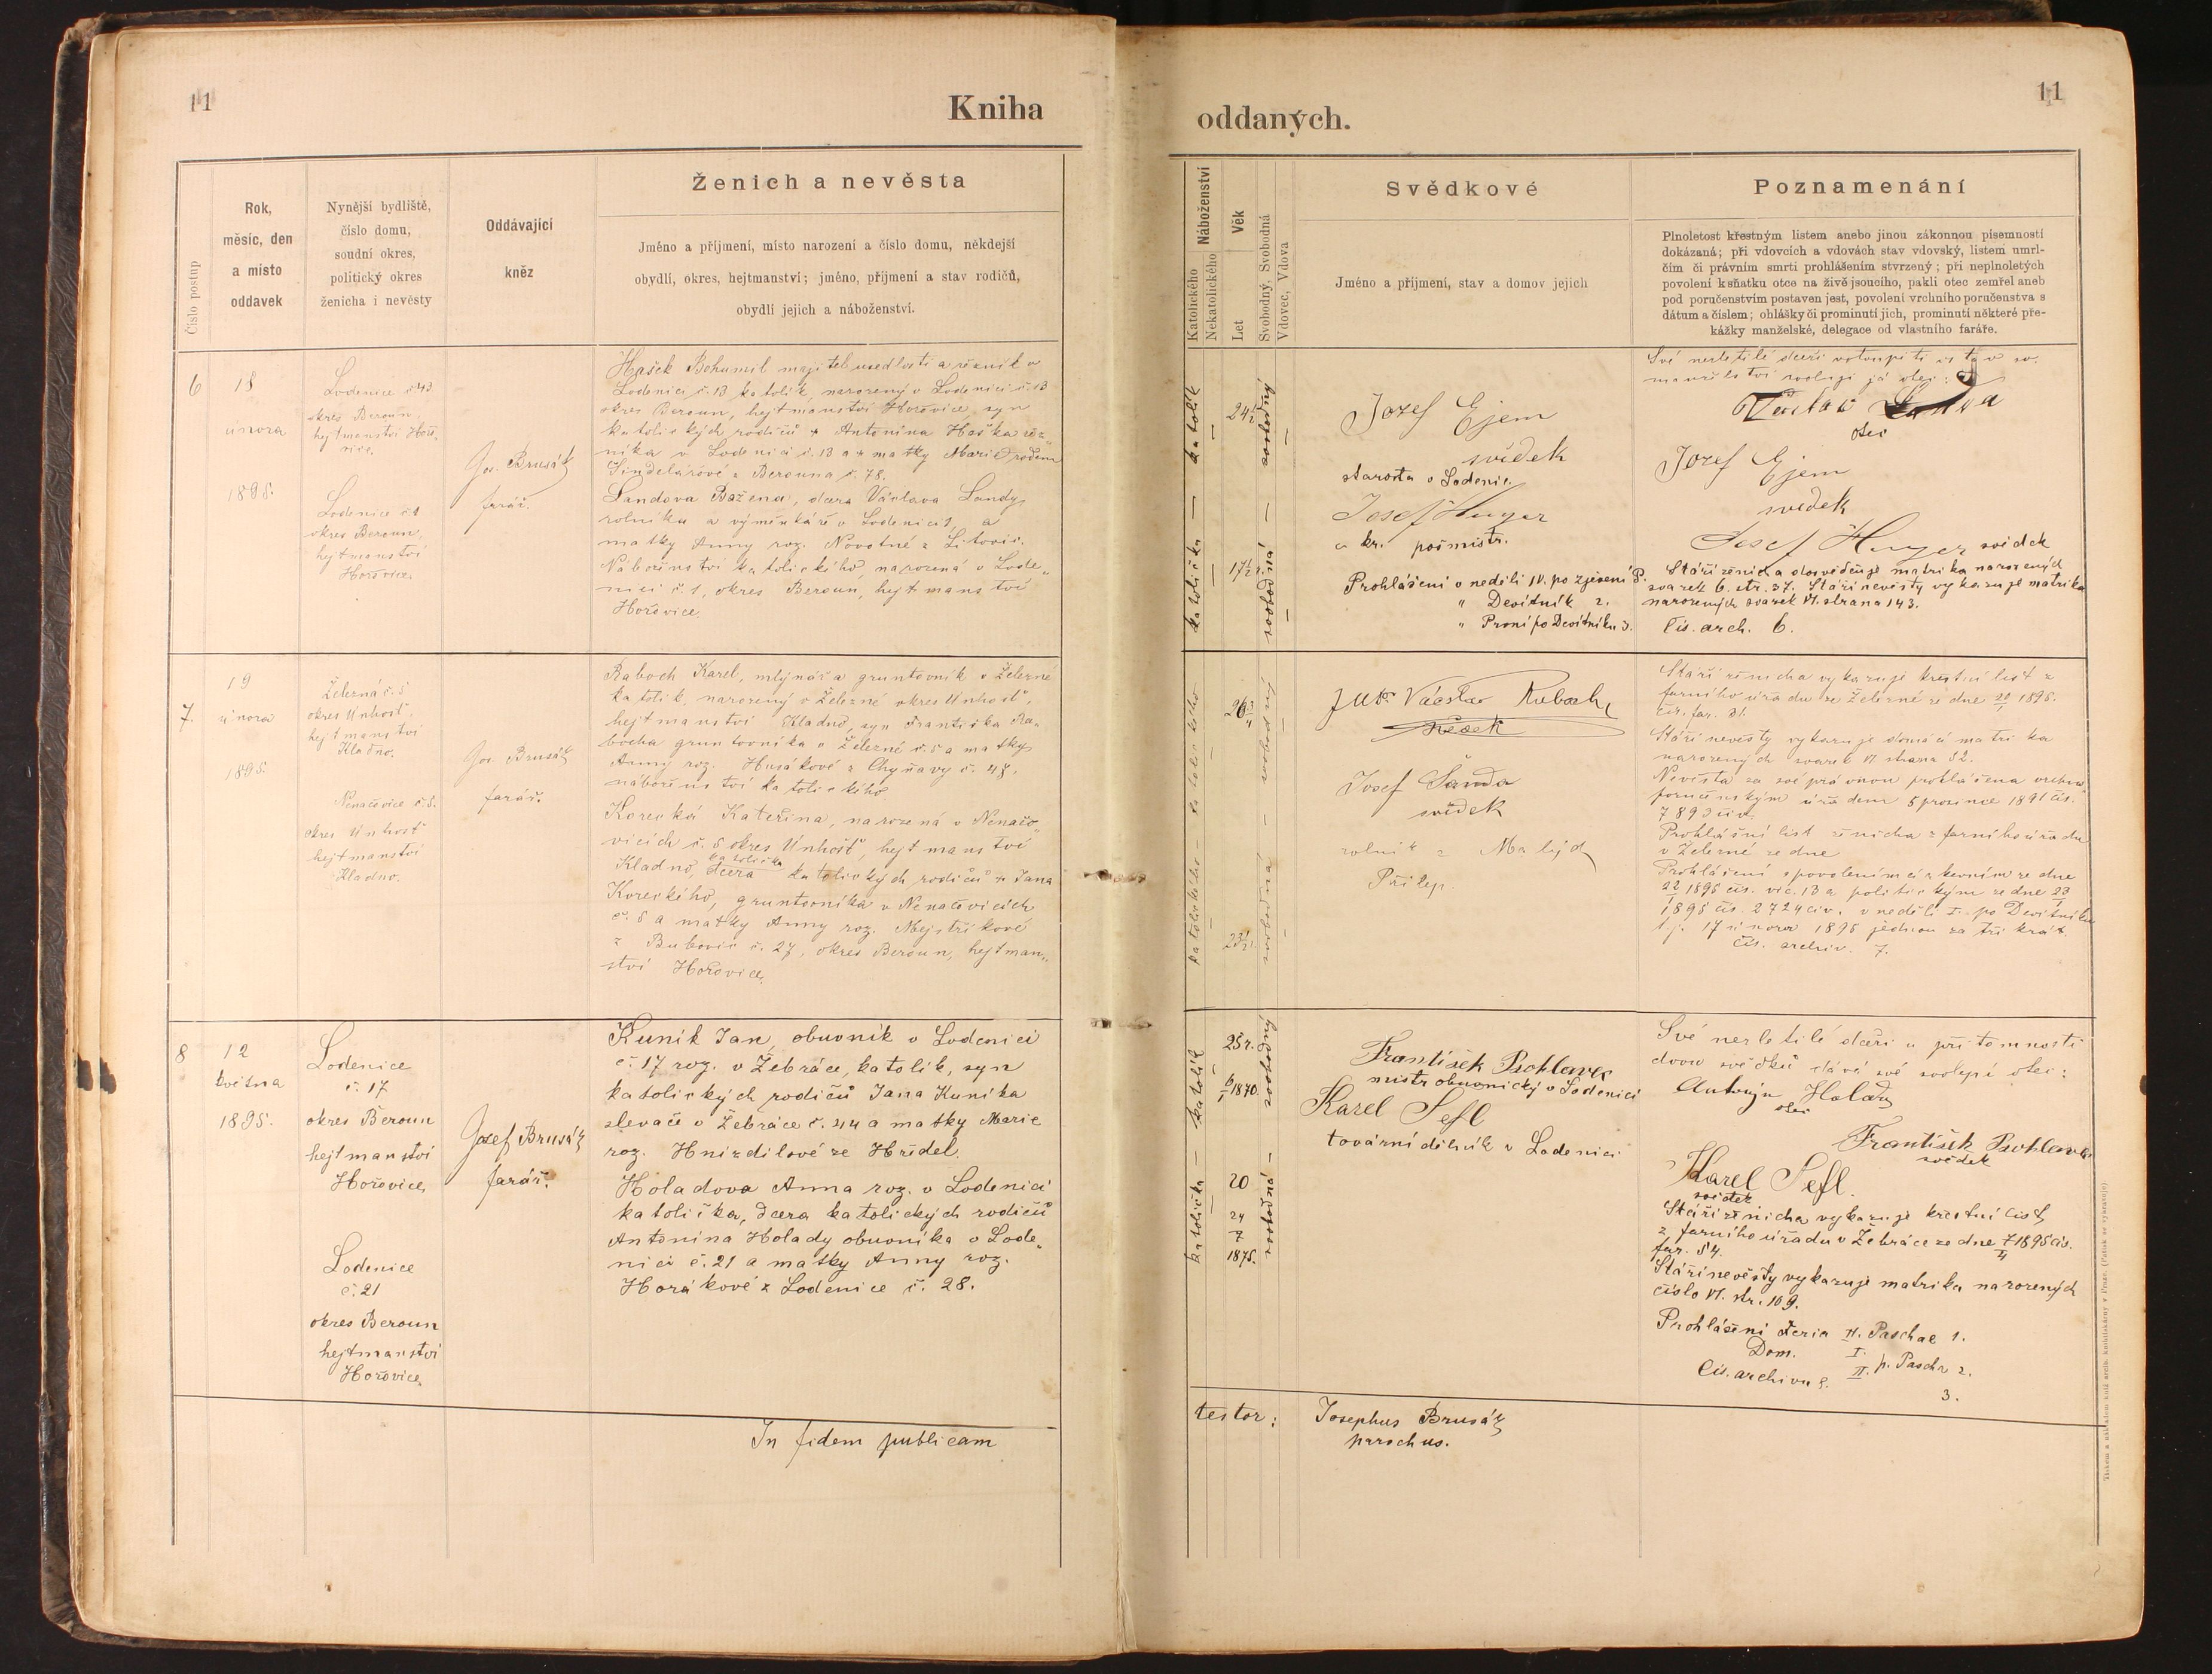 11
Kniha
Číslo postup
Rok,
měsíc, den
a místo
oddavek
Nynější bydliště,
číslo domu,
soudní okres,
politický okres
ženicha i nevěsty
Oddávající
kněz
Ženich a nevěsta
Jméno a příjmení, místo narození a číslo domu, někdejší
obydlí, okres, hejtmanství; jméno, příjmení a stav rodičů,
obydlí jejich a náboženství.
6
18
února
1895.
Lodenice č 43
okres Beroun,
hejtmanství Hořo-
vice.
Lodenice č 1
okres Beroun,
hejtmanství
Hořovice.
Jos. Brusák
farář.
Hašek Bohumil majitel usedlosti a řezník v
Lodenici č. 13 katolík, narozený v Lodenici č. 13
okres Beroun, hejtmanství Hořovice, syn
katolických rodičů + Antonína Haška řez-
níka v Lodenici č. 13 a + matky Marie rodem
Šindelářové z Berouna č. 78.
Landova Božena, dcera Václava Landy
rolníka a výměnkáře v Lodenici 1, a
matky Anny roz. Novotné z Litovic.
Náboženství katolického, narozená v Lode„
nici č. 1, okres Beroun, hejtmanství
Hořovice.
7.
19
února
1895.
Železná č. 5
okres Unhošť,
hejtmanství
Kladno.
Nenačovice č. 5.
okres Unhošť
hejtmanství
Kladno.
Jos. Brusák
farář.
Raboch Karel, mlynář a gruntovník v Železné
katolík, narozený v Železné okres Unhošť,
hejtmanství Kladno, syn Františka Ra„
bocha gruntovníka v Železné č. 5 a matky
Anny roz. Husákové z Chyňavy č. 48.
náboženství katolického.
Korecká Kateřina, narozená v Nenačo„
vicích č. 5 okres Unhošť, hejtmanství
katolička
Kladno, dcera katolických rodičů + Jana
Koreckého, gruntovníka v Nenačovicích
č. 5 a matky Anny roz. Mejstříkové
z Bubovic č. 27, okres Beroun, hejtman„
ství Hořovice.
8
12
května
1895.
Lodenice
č. 17
okres Beroun
hejtmanství
Hořovice.
Lodenice
č. 21
okres Beroun
hejtmanství
Hořovice.
Josef Brusák
farář.
Kuník Jan, obuvník v Lodenici
č. 17 roz. v Žebráce, katolík, syn
katolických rodičů Jana Kuníka
slevače v Žebráce č. 44 a matky Marie
roz. Hnízdilové ze Hředel.
Holadova Anna roz. v Lodenici
katolička, dcera katolických rodičů
Antonína Holady obuvníka v Lode„
nici č. 21 a matky Anny roz.
Horákové z Lodenice č. 28.
In fidem publicam
11
oddaných.
Náboženství
Katolického
Nekatolického
Věk
Let
Svobodný, Svobodná
Vdovec, Vdova
Svědkové
Jméno a příjmení, stav a domov jejich
Poznamenání
Plnoletost křestným listem anebo jinou zákonnou písemností
dokázaná; při vdovcích a vdovách stav vdovský, listem umrl-
čím či právním smrti prohlášením stvrzený; při neplnoletých
povolení k sňatku otce na živě jsoucího, pakli otec zemřel aneb
pod poručenstvím postaven jest, povolení vrchního poručenstva s
dátum a číslem; ohlášky či prominutí jich, prominutí některé pře-
kážky manželské, delegace od vlastního faráře.
katolík
katolička
svobodný
svobodná
Jozef Ejem
svědek
starosta v Lodenici
c kr. poštmistr.
Prohlášení v neděli IV. po zjevení P.
„ Devítník 2.
„ První po Devítníku 3.
Své nezletilé dceři vstoupiti v stav
manželství svoluji já otec:
Václav Landa
otec
Jozef Ejem
svědek
svědek
Stáří ženicha dosvědčuje matrika narozených
svazek 6. str. 37. Stáří nevěsty vykazuje matrika
narozených svazek VI. strana 143.
Čís. arch. 6.
katolického
katolického
svobodný
svobodná
JUDr. Václav Raboch
svědek
Josef Šanda
svědek
rolník z Malých
Přílep
Stáří ženicha vykazuje krestní list z
farního úřadu ze Železné ze dne 20/1 1895.
čís. far. 31.
Stáří nevěsty vykazuje domácí matrika
narozených svazek VI strana 52.
Nevěsta za svéprávnou prohlášena vrchno„
poručenským úřadem 5 prosince 1891 čís.
7893 civ.
Prohlášní list ženicha z farního úřadu
v Železné ze dne
Prohlášení s povolením církevním ze dne
22/1 1895 čís. vic. 13 a politickým ze dne 23/1
1895 čís. 2724 civ. v neděli I. po Devítníku
t.j. 17 února 1895 jednou za tři krát.
čís. archiv. 7.
katolík
katolička
25 r.
1870.
20
24
7
1875.
svobodný
svobodná
František Psohlavec
mistr obuvnický v Lodenici
Karel Šefl
tovární dělník v Lodenici
Své nezletilé dceři u přítomnosti
dvou svědků dává své svolení otec:
Antonín Holada
otec
František Psohlavec
svědek
Karel Šefl.
svědek
Stáří ženicha vykazuje krestní list
z farního úřadu v Žebráce ze dne 7/4 1895 čís.
far. 54.
Stáří nevěsty vykazuje matrika narozených
číslo VI. str. 109.
Prohlášení Feria II. Paschae 1.
Dom. I. p. Pascha 2.
II. 3.
Čís. archivu 8.
testor: Josephus Brusák
parochus.